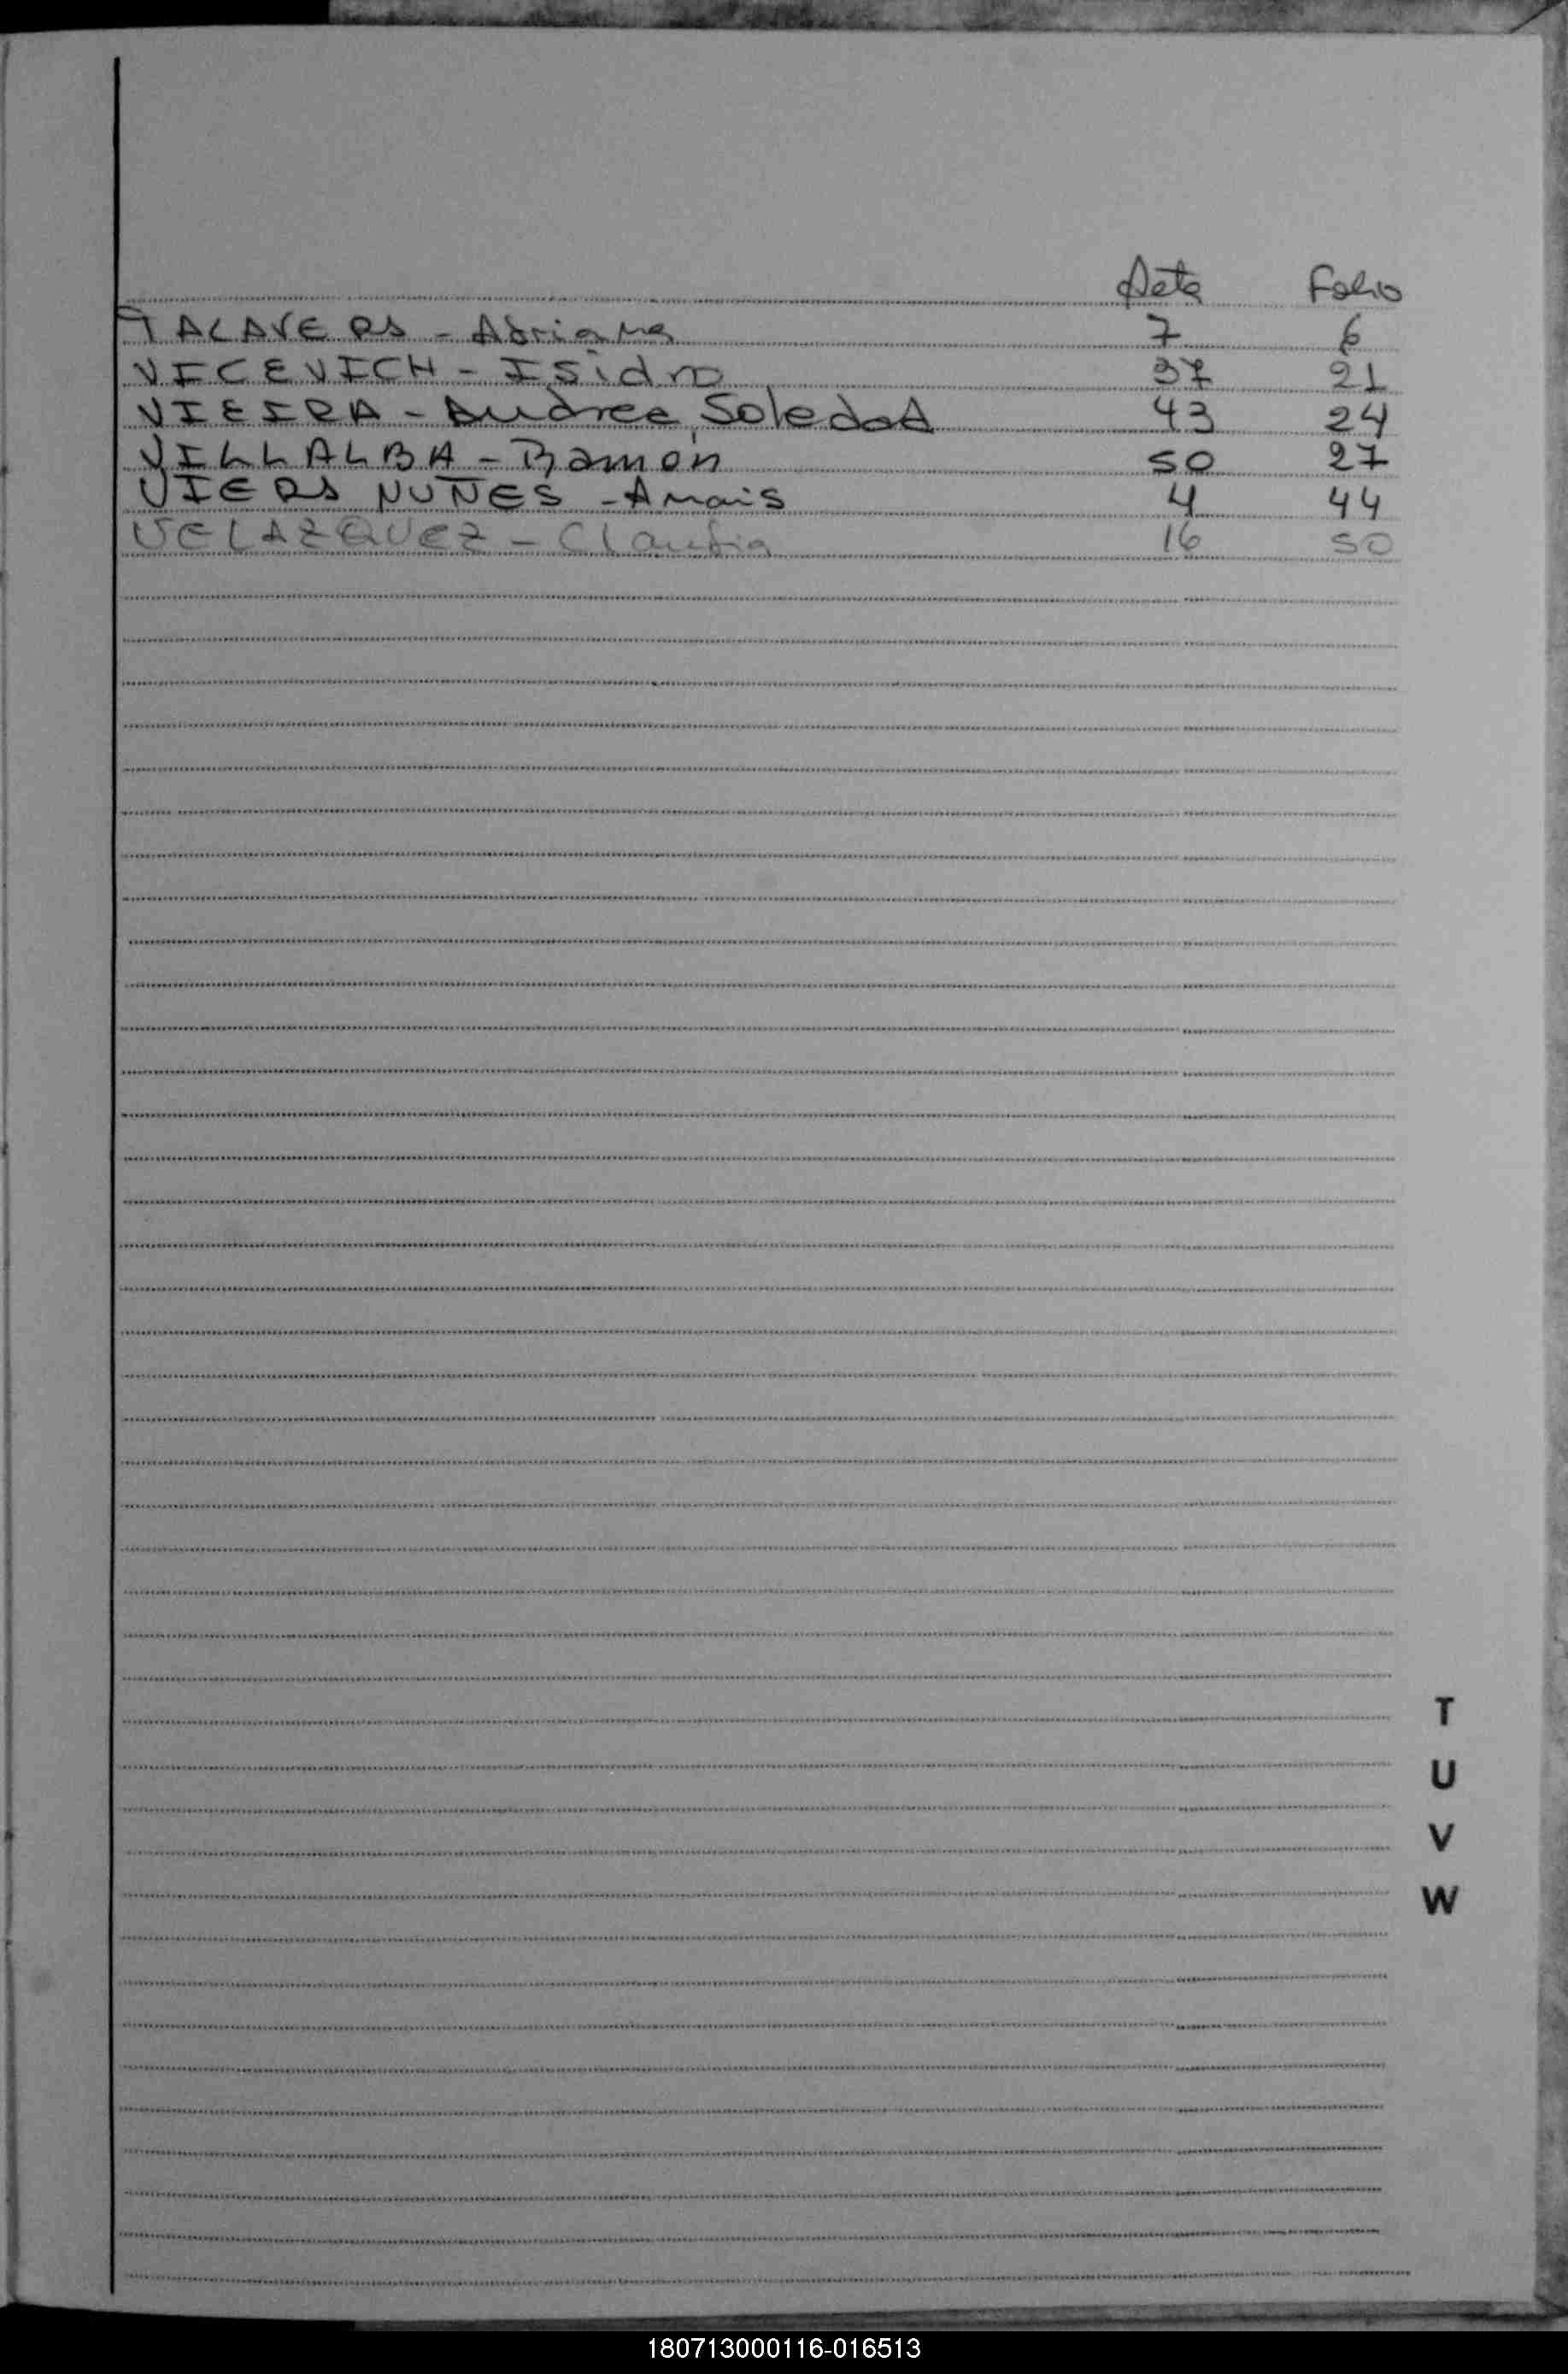 Acta Folio
TALAVERA - Adriana 7 6
VICEVICH - Isidro 37 21
VIEIRA - Andrea Soledad 43 24
VILLALBA - Ramon 50 27
VIERA NUÑES - Anais 4 44
VELAZQUEZ - Claudia 16 50
T
U
V
W
180713000116-016513